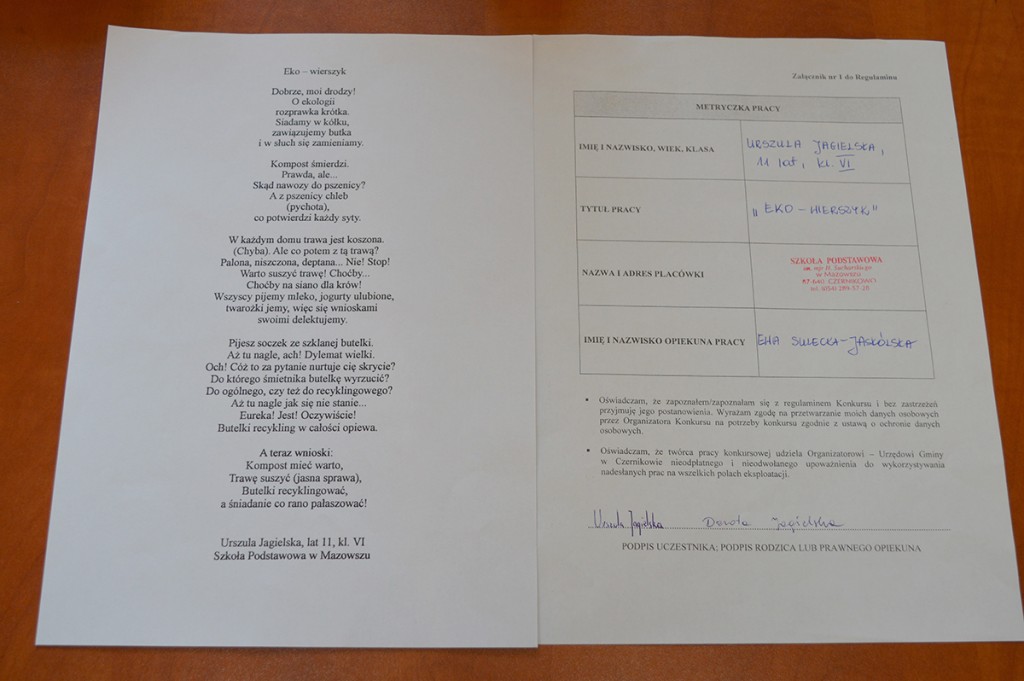 Eko – wierszyk
Dobrze, moi drodzy!
O ekologii
rozprawka krótka.
Siadamy w kółku,
zawiązujemy butka
i w słuch się zamieniamy.
Kompost śmierdzi.
Prawda, ale...
Skąd nawozy do pszenicy?
A z pszenicy chleb
(pychota),
co potwierdzi każdy syty.
W każdym domu trawa jest koszona.
(Chyba). Ale co potem z tą trawą?
Palona, niszczona, deptana... Nie! Stop!
Warto suszyć trawę! Choćby...
Choćby na siano dla krów!
Wszyscy pijemy mleko, jogurty ulubione,
twarożki jemy, więc się wnioskami
swoimi delektujemy.
Pijesz soczek ze szklanej butelki.
Aż tu nagle, ach! Dylemat wielki.
Och! Cóż to za pytanie nurtuje cię skrycie?
Do którego śmietnika butelkę wyrzucić?
Do ogólnego, czy też do recyklingowego?
Aż tu nagle jak się nie stanie...
Eureka! Jest! Oczywiście!
Butelki recykling w całości opiewa.
A teraz wnioski:
Kompost mieć warto,
Trawę suszyć (jasna sprawa),
Butelki recyklingować,
a śniadanie co rano pałaszować!
Urszula Jagielska, lat 11, kl. VI
Szkoła Podstawowa w Mazowszu
Załącznik nr 1 do Regulaminu
METRYCZKA PRACY
IMIĘ I NAZWISKO, WIEK, KLASA
URSZULA JAGIELSKA,
11 lat, kl. VI
TYTUŁ PRACY
„EKO – WIERSZYK"
NAZWA I ADRES PLACÓWKI
SZKOŁA PODSTAWOWA
im. mjr H. Sucharskiego
w Mazowszu
87-640 CZERNIKOWO
tel. (054) 289-57-28
IMIĘ I NAZWISKO OPIEKUNA PRACY
EWA SULECKA-JASKÓLSKA
▪ Oświadczam, że zapoznałem/zapoznałam się z regulaminem Konkursu i bez zastrzeżeń
przyjmuję jego postanowienia. Wyrażam zgodę na przetwarzanie moich danych osobowych
przez Organizatora Konkursu na potrzeby konkursu zgodnie z ustawą o ochronie danych
osobowych.
▪ Oświadczam, że twórca pracy konkursowej udziela Organizatorowi – Urzędowi Gminy
w Czernikowie nieodpłatnego i nieodwołanego upoważnienia do wykorzystywania
nadesłanych prac na wszelkich polach eksploatacji.
Urszula Jagielska Dorota Jagielska
PODPIS UCZESTNIKA; PODPIS RODZICA LUB PRAWNEGO OPIEKUNA